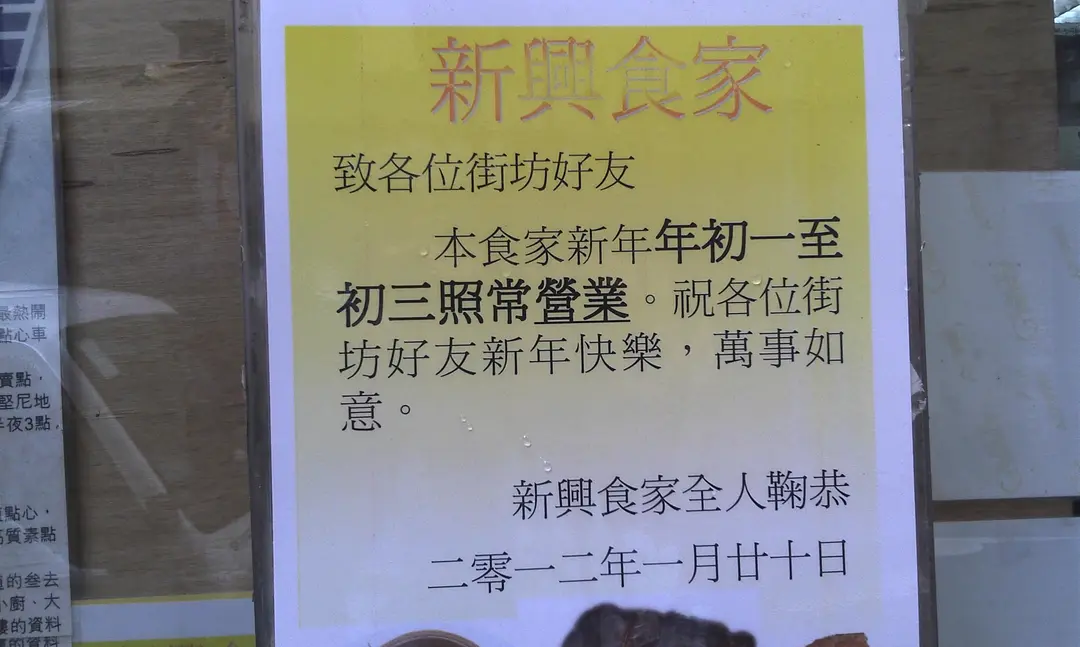 新興食家
致各位街坊好友
本食家新年年初一至
初三照常營業。祝各位街
坊好友新年快樂，萬事如
意。
新興食家全人鞠恭
二零一二年一月廿十日
最熱鬧
點心車
賣點，
堅尼地
夜3點，
點心，
質素點
的叁去
小廚、大
的資料
的資料